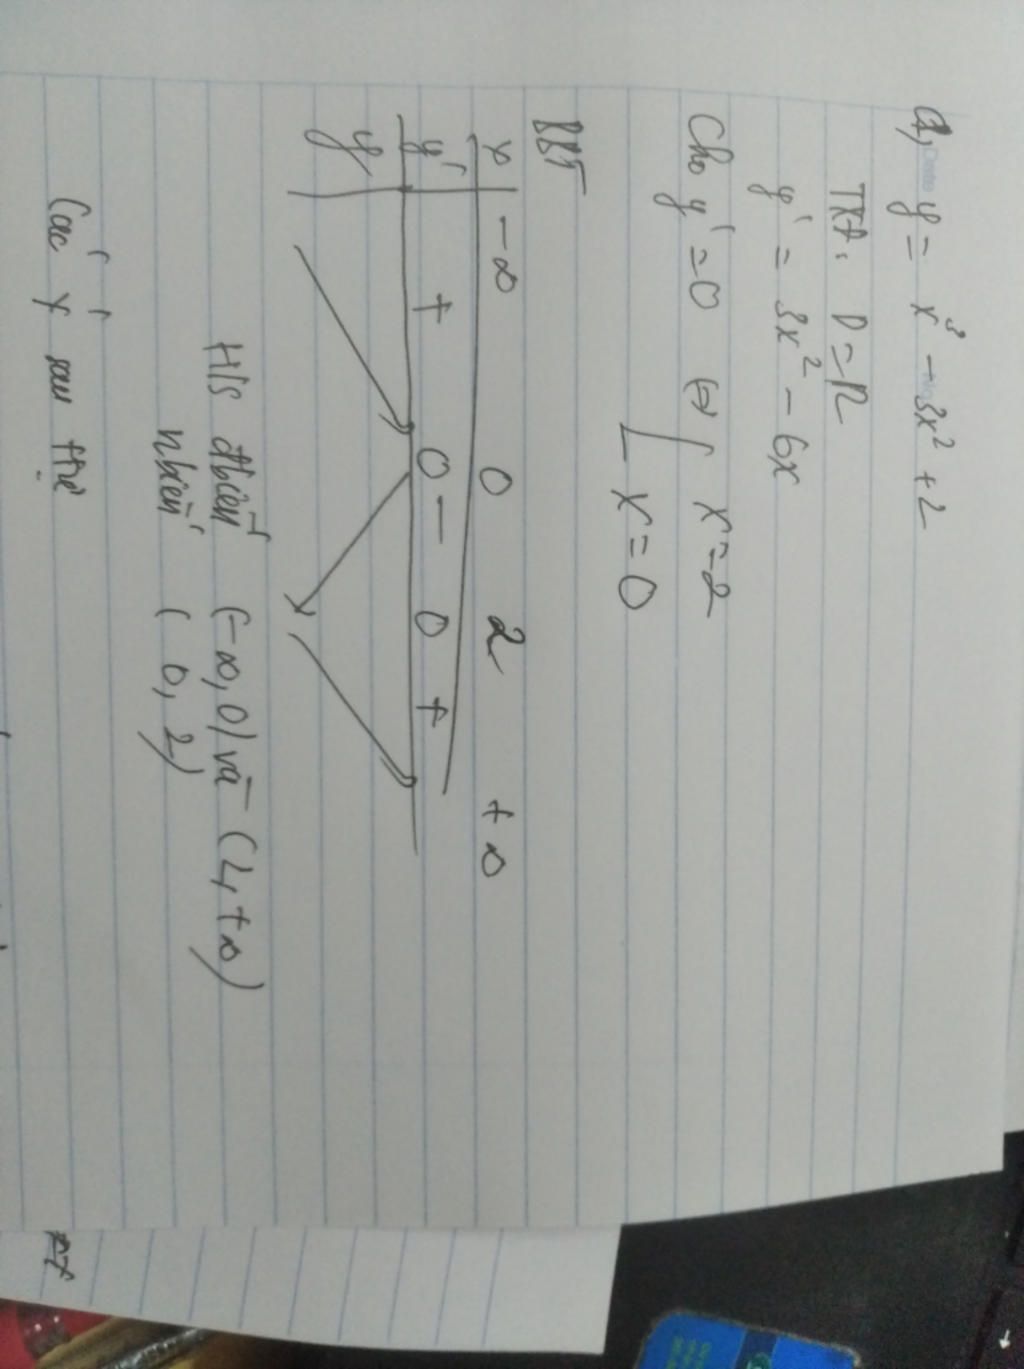 a, y = x³ - 3x² + 2
TXĐ: D = R
y' = 3x² - 6x
Cho y' = 0 ⇔ [ x = 2
x = 0
BBT
x -∞ 0 2 +∞
y' + 0 - 0 +
y
H/s đbiến (-∞, 0) và (2, +∞)
nbiến ( 0, 2)
Các ý sau thế